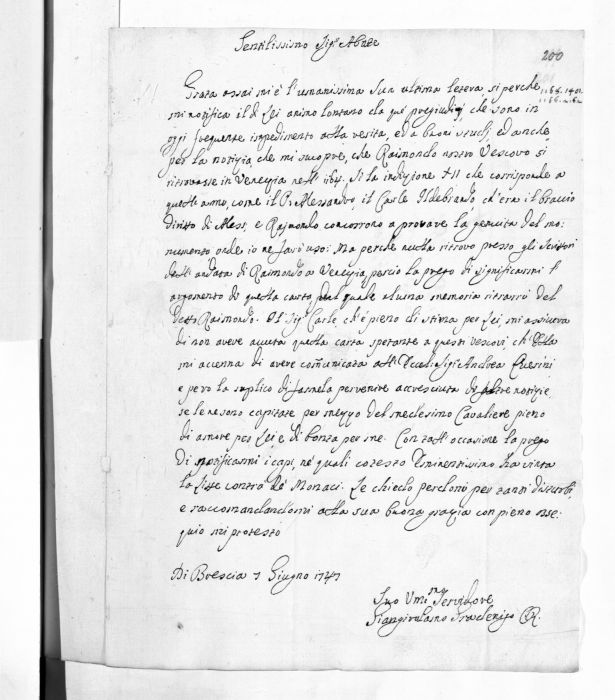 Gentilissimo Sig.r Abate
200
Grata assai mi è l'umanissima sua ultima lettera si perche
mi notifica il di Lei animo lontano da que' pregiudizj, che sono in
oggi frequente impedimento alla verita, ed a buoni studj, ed anche
per la notizia, che mi scuopre, che Raimondo nostro Vescovo si
ritrovasse in Venezia nell' 1164. Si la indizione XII che corrisponde a
quell' anno, come il P. Alessandro il Carle Ildebrando ch'era il braccio
diritto di Aless. e Raimondo concorrono a provare la genuita del mo=
numento onde io ne farò uso: Ma perche nulla ritrovo presso gli Scrittori
dell' andata di Raimondo a Venezia, perciò la prego di significarmi l'
argomento di quella carta, dal quale alcuna memoria ritrarrò del
detto Raimondo. Il Sig.r Carle ch'è pieno di stima per Lei, mi assicura
di non avere avuta quella carta spettante a questi Vescovi ch'Ella
mi accenna di avere comunicata all' Sig.r Andrea Querini
e però la suplico di farmela pervenire accresciuta di altre notizie,
se le ne sono capitate per mezzo del medesimo Cavaliere pieno
di amore per Lei, e di bontà per me. Con tall' occasione la prego
di notificarmi i capi, ne' quali cotesto Eminentissimo ha vinta
la lite contra de' Monaci. Le chiedo perdono per tanti disturbi,
e raccomandandomi alla sua buona grazia con pieno osse=
quio mi protesto
Di Brescia 7 Giugno 1747
Suo Umi.mo Servidore
Giangirolamo Gradenigo CR.